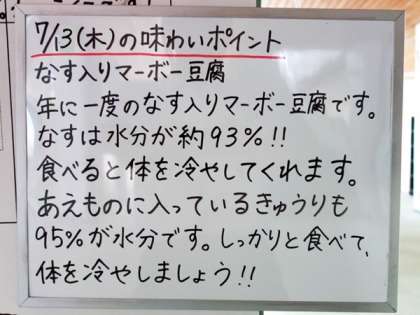 7/13(木)の味わいポイント
なす入りマーボー豆腐
年に一度のなす入りマーボー豆腐です。
なすは水分が約93%!!
食べると体を冷やしてくれます。
あえものに入っているきゅうりも
95%が水分です。しっかりと食べて、
体を冷やしましょう!!